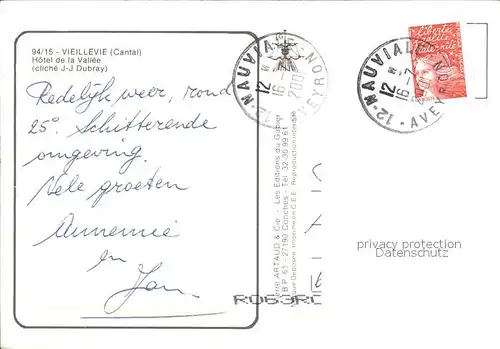 94/15 - VIEILLEVIE (Cantal)
Hôtel de la Vallée
(cliché J-J Dubray)
Redelijk weer, rond
25°. Schitterende
omgeving.
Vele groeten
Annemie
en
Jan
12-NAUVIALE
12 H
16-7
AVEYRON
12-NAUVIALE
12 H
16-7
AVEYRON
liberté
égalité
fraternité
ARTAUD & Cie - Les Editions du Gabier
B.P. 61 - 27190 Conches - Tél. 32-30 99 61
Reproduction interdite
privacy protection
Datenschutz